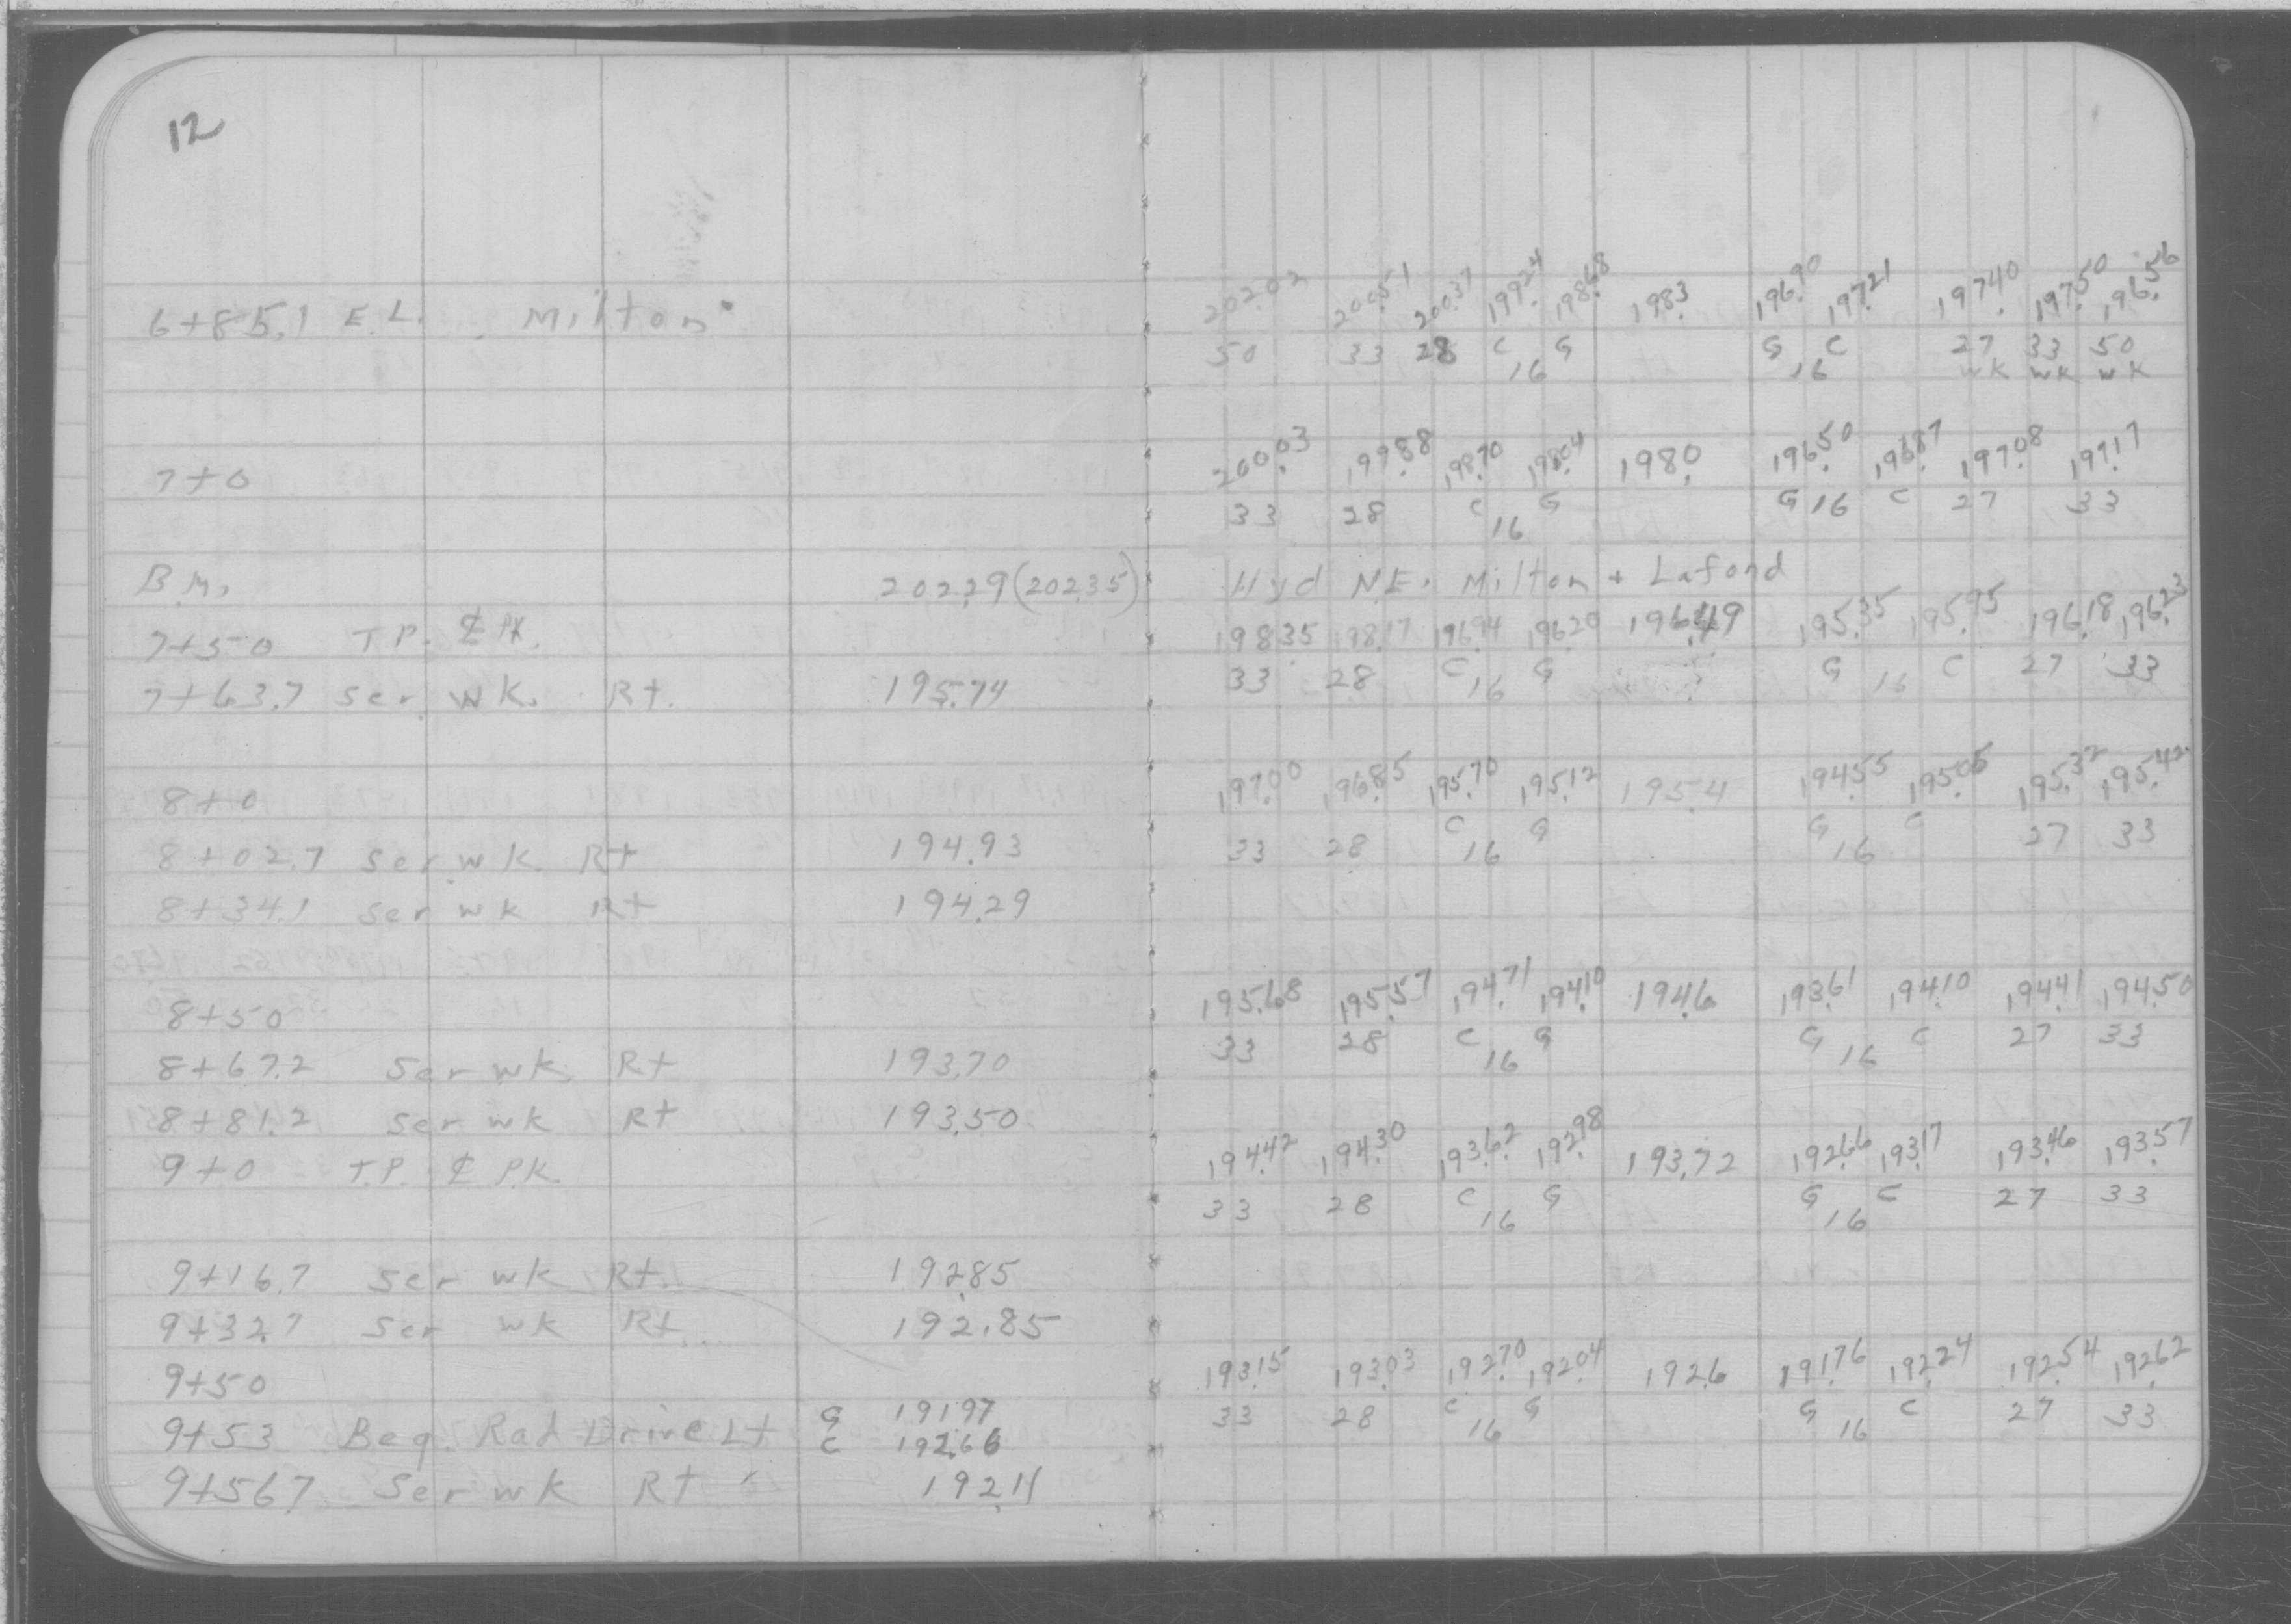 12
6+85.1 E.L. Milton 202.02 200.51 200.37 199.24 198.68 198.3 196.90 197.21 197.40 197.50 196.56
50 33 28 C G G C 27 33 50
16 16 wk wk wk
7+0 200.03 199.88 198.70 198.04 198.0 196.50 196.87 197.08 197.17
33 28 C G G 16 C 27 33
16
B.M. 202.29 (202.35) Hyd N.E. Milton + Lafond
7+50 T.P. ₵ P.K. 198.35 198.17 196.94 196.20 196.49 195.35 195.95 196.18 196.23
7+63.7 Ser. wk. Rt. 195.74 33 28 C 16 G G 16 C 27 33
8+0 197.00 196.85 195.70 195.12 195.4 194.55 195.06 195.32 195.42
8+02.7 Ser wk. Rt 194.93 33 28 C 16 G G 16 C 27 33
8+34.1 Ser wk Rt 194.29
8+50 195.68 195.57 194.71 194.10 194.6 193.61 194.10 194.41 194.50
33 28 C 16 G G 16 C 27 33
8+67.2 Ser wk Rt 193.70
8+81.2 Ser wk Rt 193.50
9+0 T.P. ₵ P.K. 194.42 194.30 193.62 192.98 193.72 192.66 193.17 193.46 193.57
33 28 C 16 G G 16 C 27 33
9+16.7 Ser wk Rt. 192.85
9+32.7 Ser wk Rt. 192.85
9+50 193.15 193.03 192.70 192.04 192.6 191.76 192.24 192.54 192.62
9+53 Beg. Rad Drive Lt G 191.97 33 28 C 16 G G 16 C 27 33
C 192.66
9+56.7 Ser wk Rt 192.11